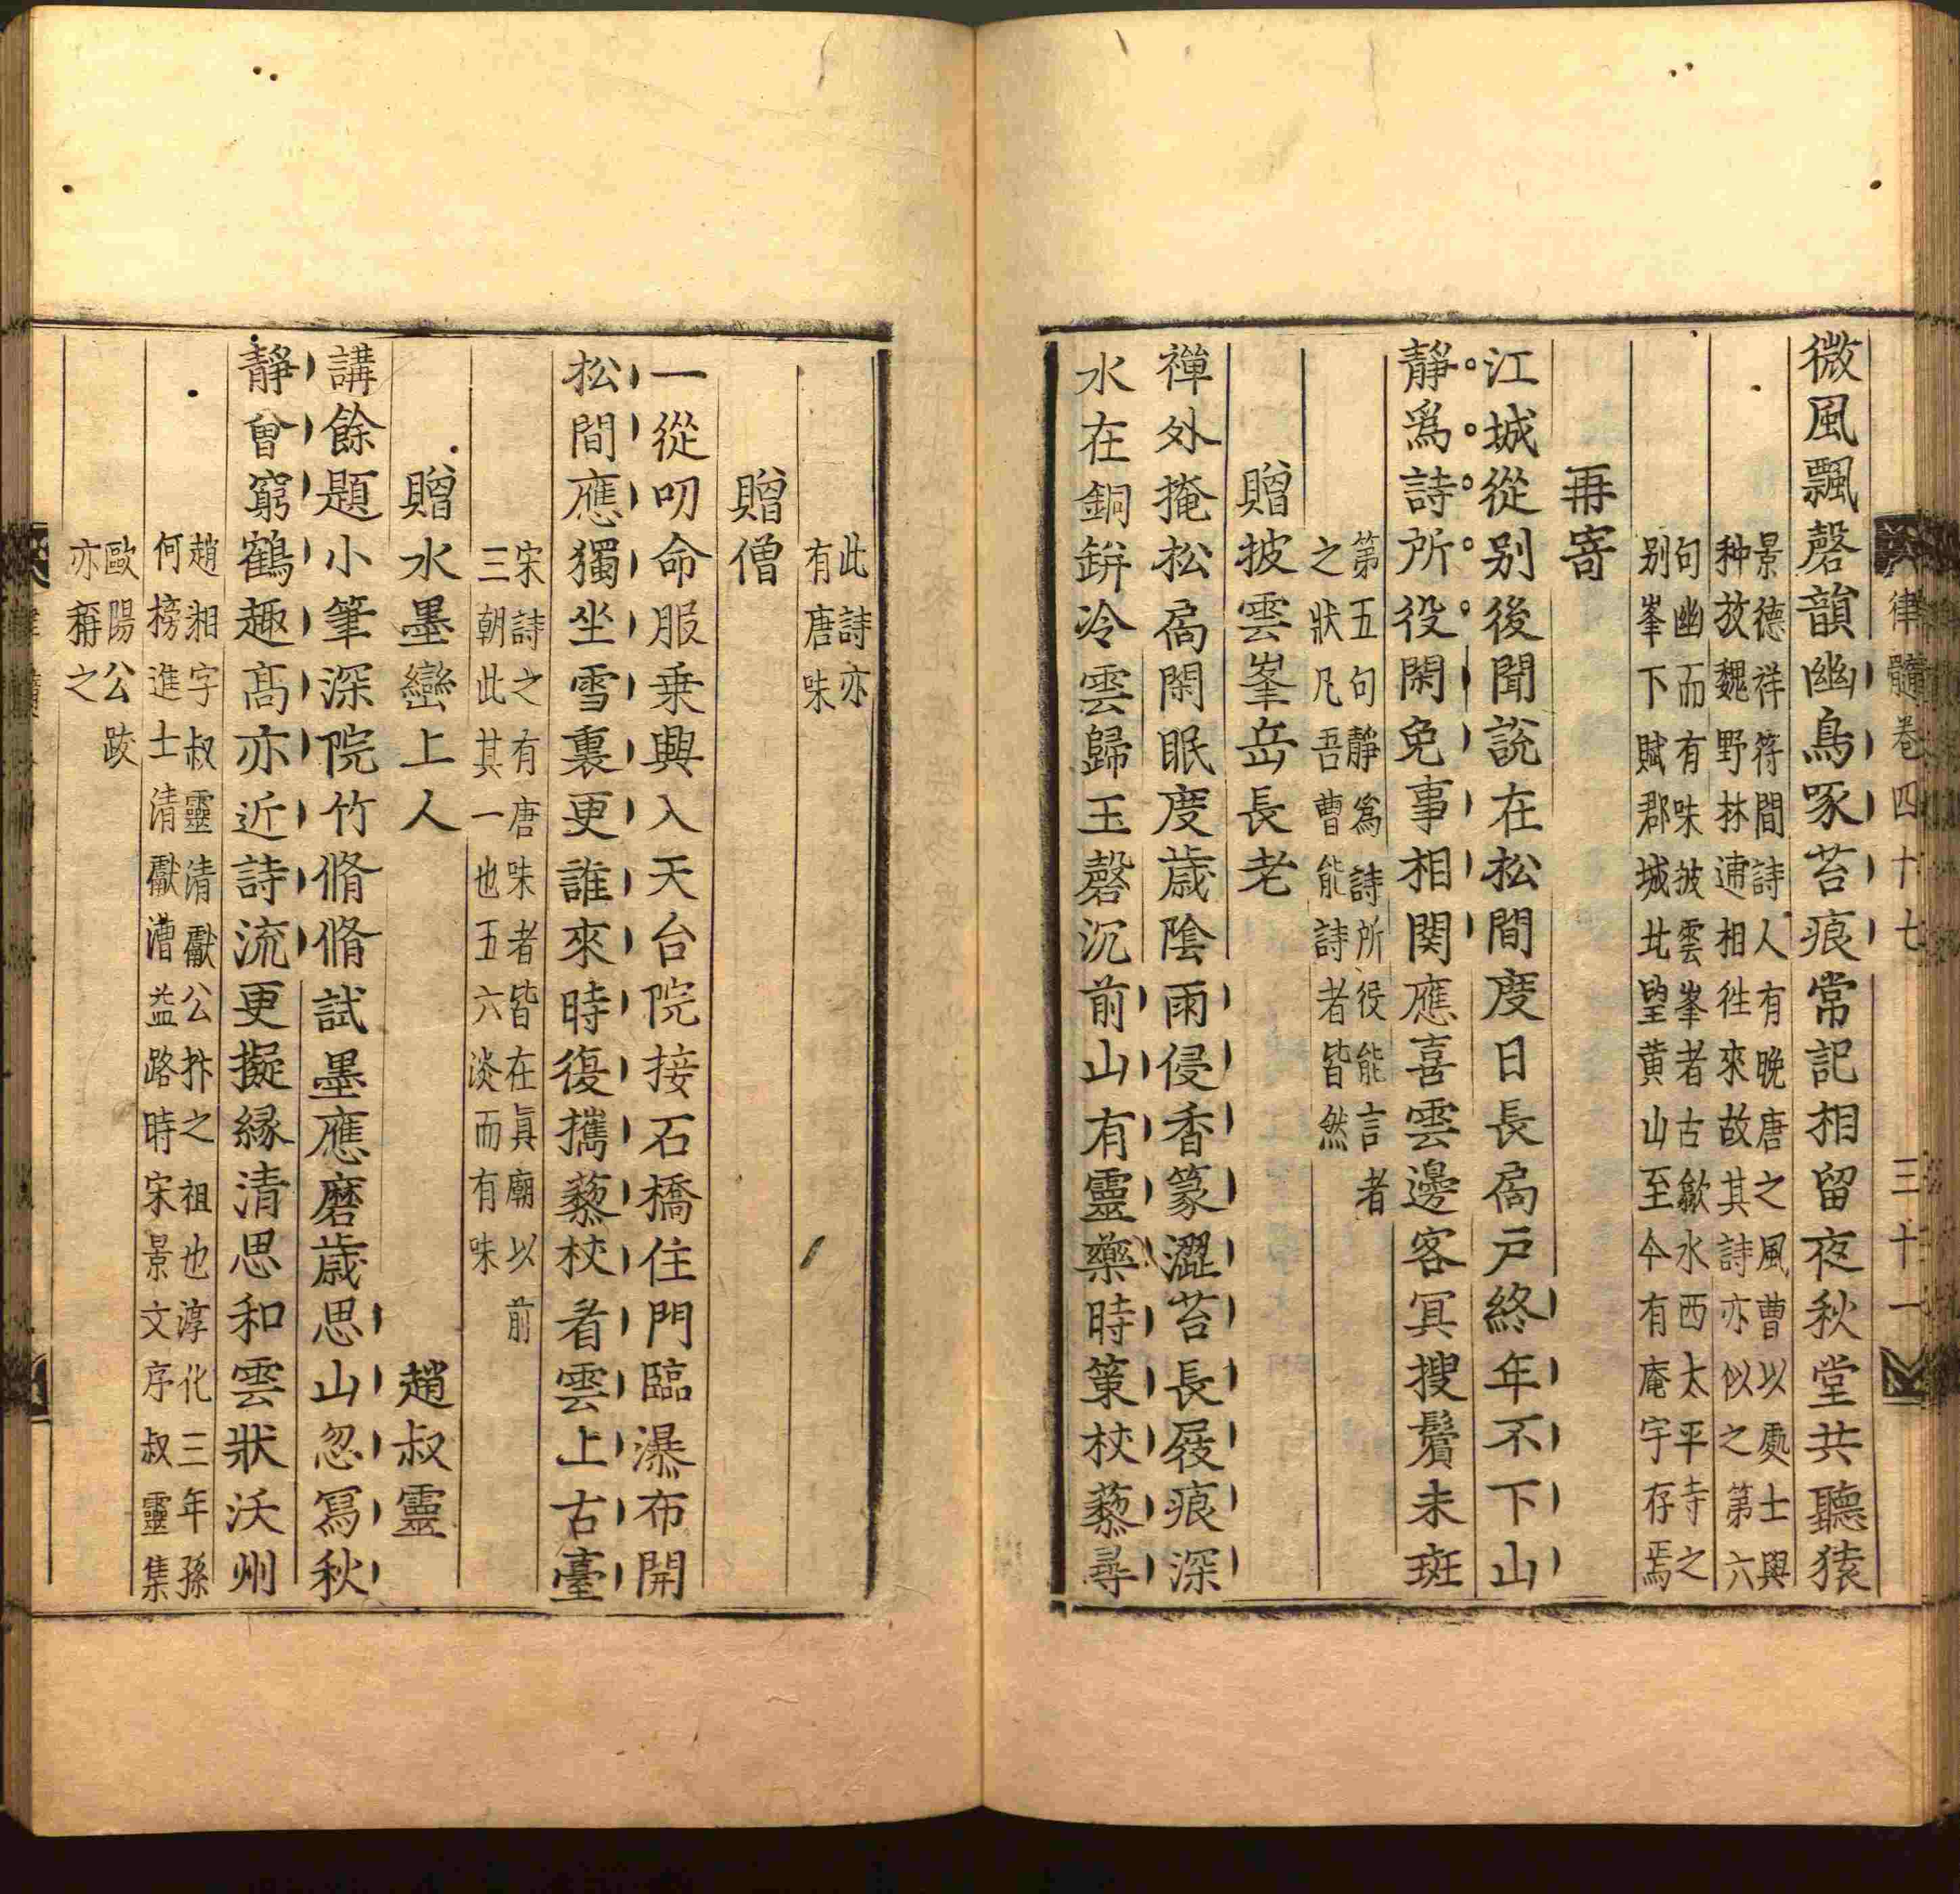 律髓卷四十七 三十一
微風飄磬韻幽鳥啄苔痕常記相留夜秋堂共聽猿
景德祥符間詩人有晚唐之風曹以處士與
种放魏野林逋相徃來故其詩亦似之第六
句幽而有味披雲峯者古歙水西太平寺之
别峯下賦郡城北望黄山至今有庵宇存焉
再寄
江城從别後聞說在松間度日長扃戸終年不下山
靜爲詩所役閑免事相関應喜雲邊客冥搜鬢未斑
第五句靜爲詩所役能言者
之狀凡吾曹能詩者皆然
贈披雲峯岳長老
禪外掩松扃閑眠度歳陰雨侵香篆澀苔長屐痕深
水在銅缾冷雲歸玉磬沉前山有靈藥時策杖藜尋
此詩亦
有唐味
贈僧
一從叨命服乗興入天台院接石橋住門臨瀑布開
松間應獨坐雪裏更誰來時復攜藜杖看雲上古臺
宋詩之有唐味者皆在眞廟以前
三朝此其一也五六淡而有味
贈水墨巒上人 趙叔靈
講餘題小筆深院竹脩脩試墨應磨歳思山忽寫秋
靜曾窮鶴趣髙亦近詩流更擬縁清思和雲狀沃州
趙湘字叔靈清獻公抃之祖也淳化三年孫
何榜進士清獻漕益路時宋景文序叔靈集
歐陽公跋
亦稱之